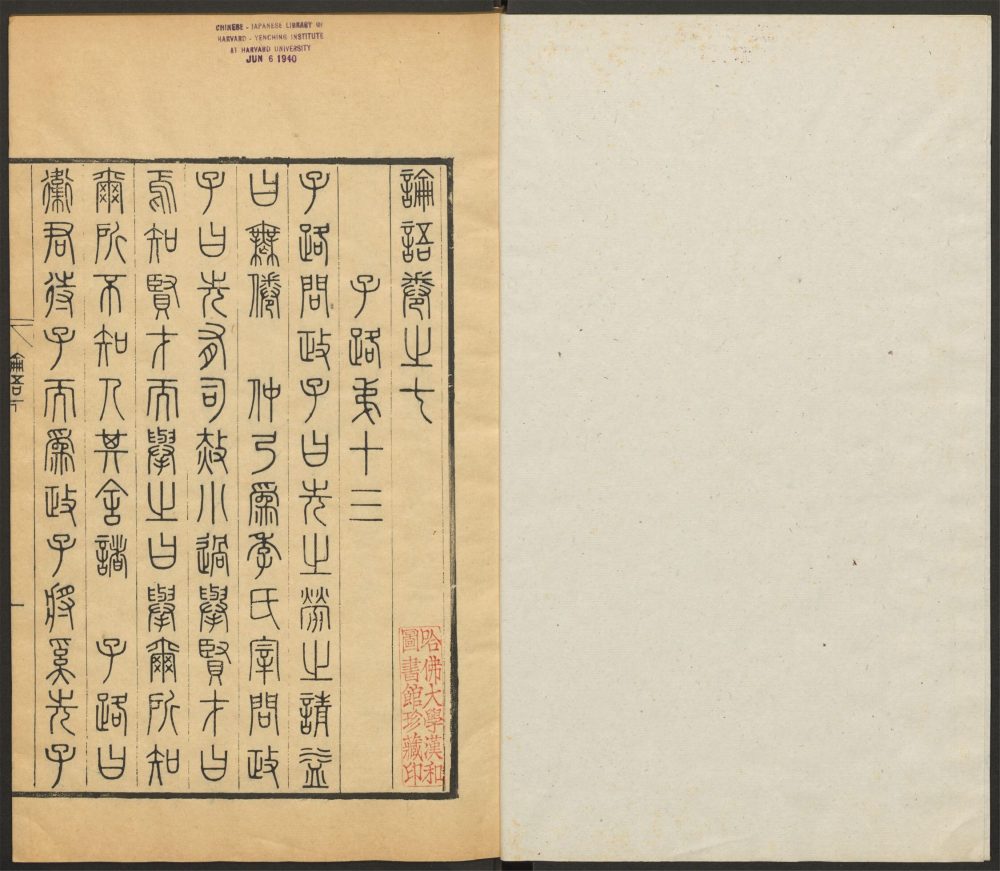 CHINESE - JAPANESE LIBRARY OF
HARVARD - YENCHING INSTITUTE
AT HARVARD UNIVERSITY
JUN 6 1940
論語卷之七
子路弟十三
子路問政子曰先之勞之請益
曰無倦　仲弓爲季氏宰問政
子曰先有司赦小過舉賢才曰
焉知賢才而舉之曰舉爾所知
爾所不知人其舍諸　子路曰
衞君待子而爲政子將奚先子
哈佛大學漢和
圖書館珍藏印
論語七
一